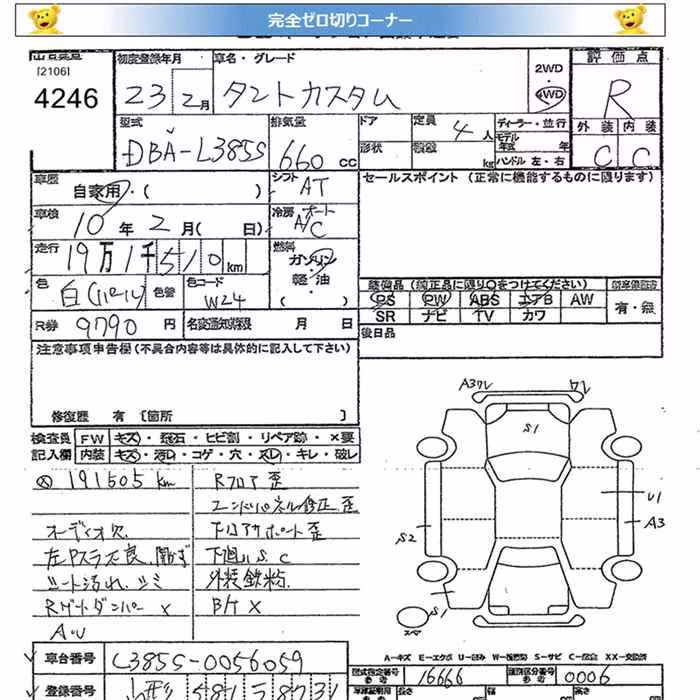 完全ゼロ切りコーナー
[2106]
4246
初度登録年月
23 2月
車名・グレード
タントカスタム
2WD
4WD
評価点
R
外装 内装
C C
型式
DBA-L385S
排気量
660 cc
ドア
形状
定員 4人
kg
ディーラー・並行
モデル年式 年
ハンドル 左・右
車歴
自家用・( )
シフト AT
セールスポイント (正常に機能するものに限ります)
車検
10年2月( 日)
冷房 オート A/C
走行
19万1千510km
燃料
ガソリン
軽油
( )
色
白(パール)
色替
色コード
W24
装備品 (純正品に限り○をつけてください)
PS PW ABS エアB AW
SR ナビ TV カワ
有・無
R券 9790 円
名変通知期限 月 日
後日品
注意事項申告欄 (不具合内容等は具体的に記入して下さい)
修復歴 有 [箇所 ]
検査員
記入欄
FW キズ・飛石・ヒビ割・リペア跡・×要
内装 キズ・汚レ・コゲ・穴・スレ・キレ・破レ
191505 km
オーディオ欠
シート汚れ、シミ
Rゲートダンパー X
A・U
Rフロア歪
エンドパネル修正歪
下廻りS.C
外装鉄粉
B/ケ X
A3ワレ
ワレ
S1
U1
A3
S2
S1
スペア
A-キズ E-エクボ U-凹み W-波 S-サビ C-腐食 XX-交換済
車台番号 L385S-0056059
型式指定番号 16666
類別区分番号 0006
登録番号 山形 581
長さ
幅
高さ